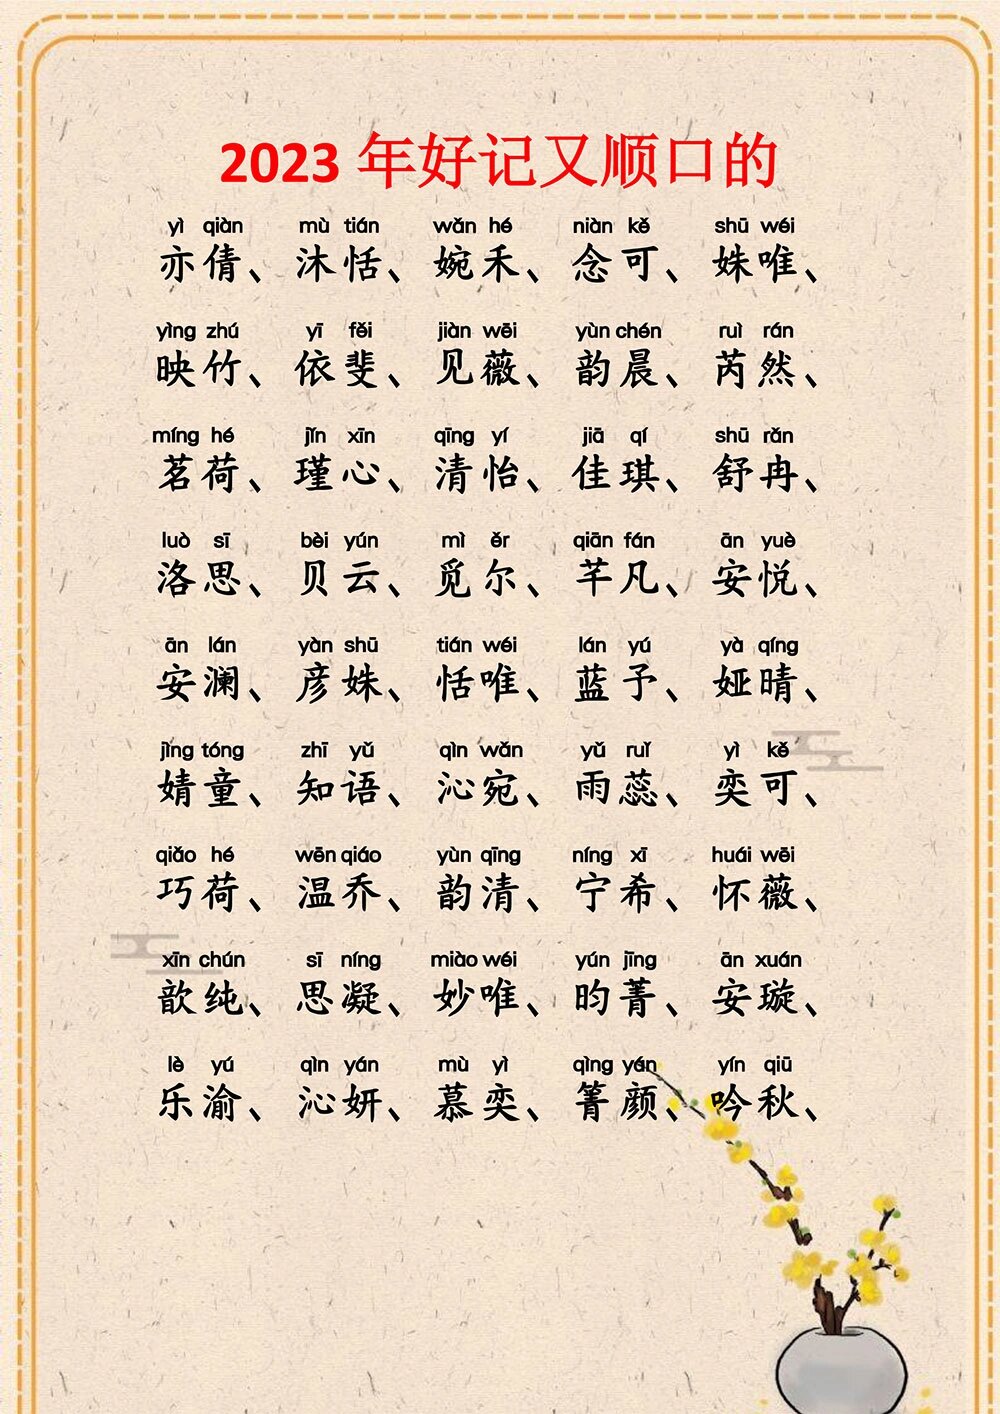 2023 年好记又顺口的
yì qiàn mù tián wǎn hé niàn kě shū wéi
亦倩、沐恬、婉禾、念可、姝唯、
yìng zhú yī fěi jiàn wēi yùn chén ruì rán
映竹、依斐、见薇、韵晨、芮然、
míng hé jǐn xīn qīng yí jiā qí shū rǎn
茗荷、瑾心、清怡、佳琪、舒冉、
luò sī bèi yún mì ěr qiān fán ān yuè
洛思、贝云、觅尔、芊凡、安悦、
ān lán yàn shū tián wéi lán yú yà qíng
安澜、彦姝、恬唯、蓝予、娅晴、
jìng tóng zhī yǔ qìn wǎn yǔ ruǐ yì kě
婧童、知语、沁宛、雨蕊、奕可、
qiǎo hé wēn qiáo yùn qīng níng xī huái wēi
巧荷、温乔、韵清、宁希、怀薇、
xīn chún sī níng miào wéi yún jīng ān xuán
歆纯、思凝、妙唯、昀菁、安璇、
lè yú qìn yán mù yì qìng yán yín qiū
乐渝、沁妍、慕奕、箐颜、吟秋、